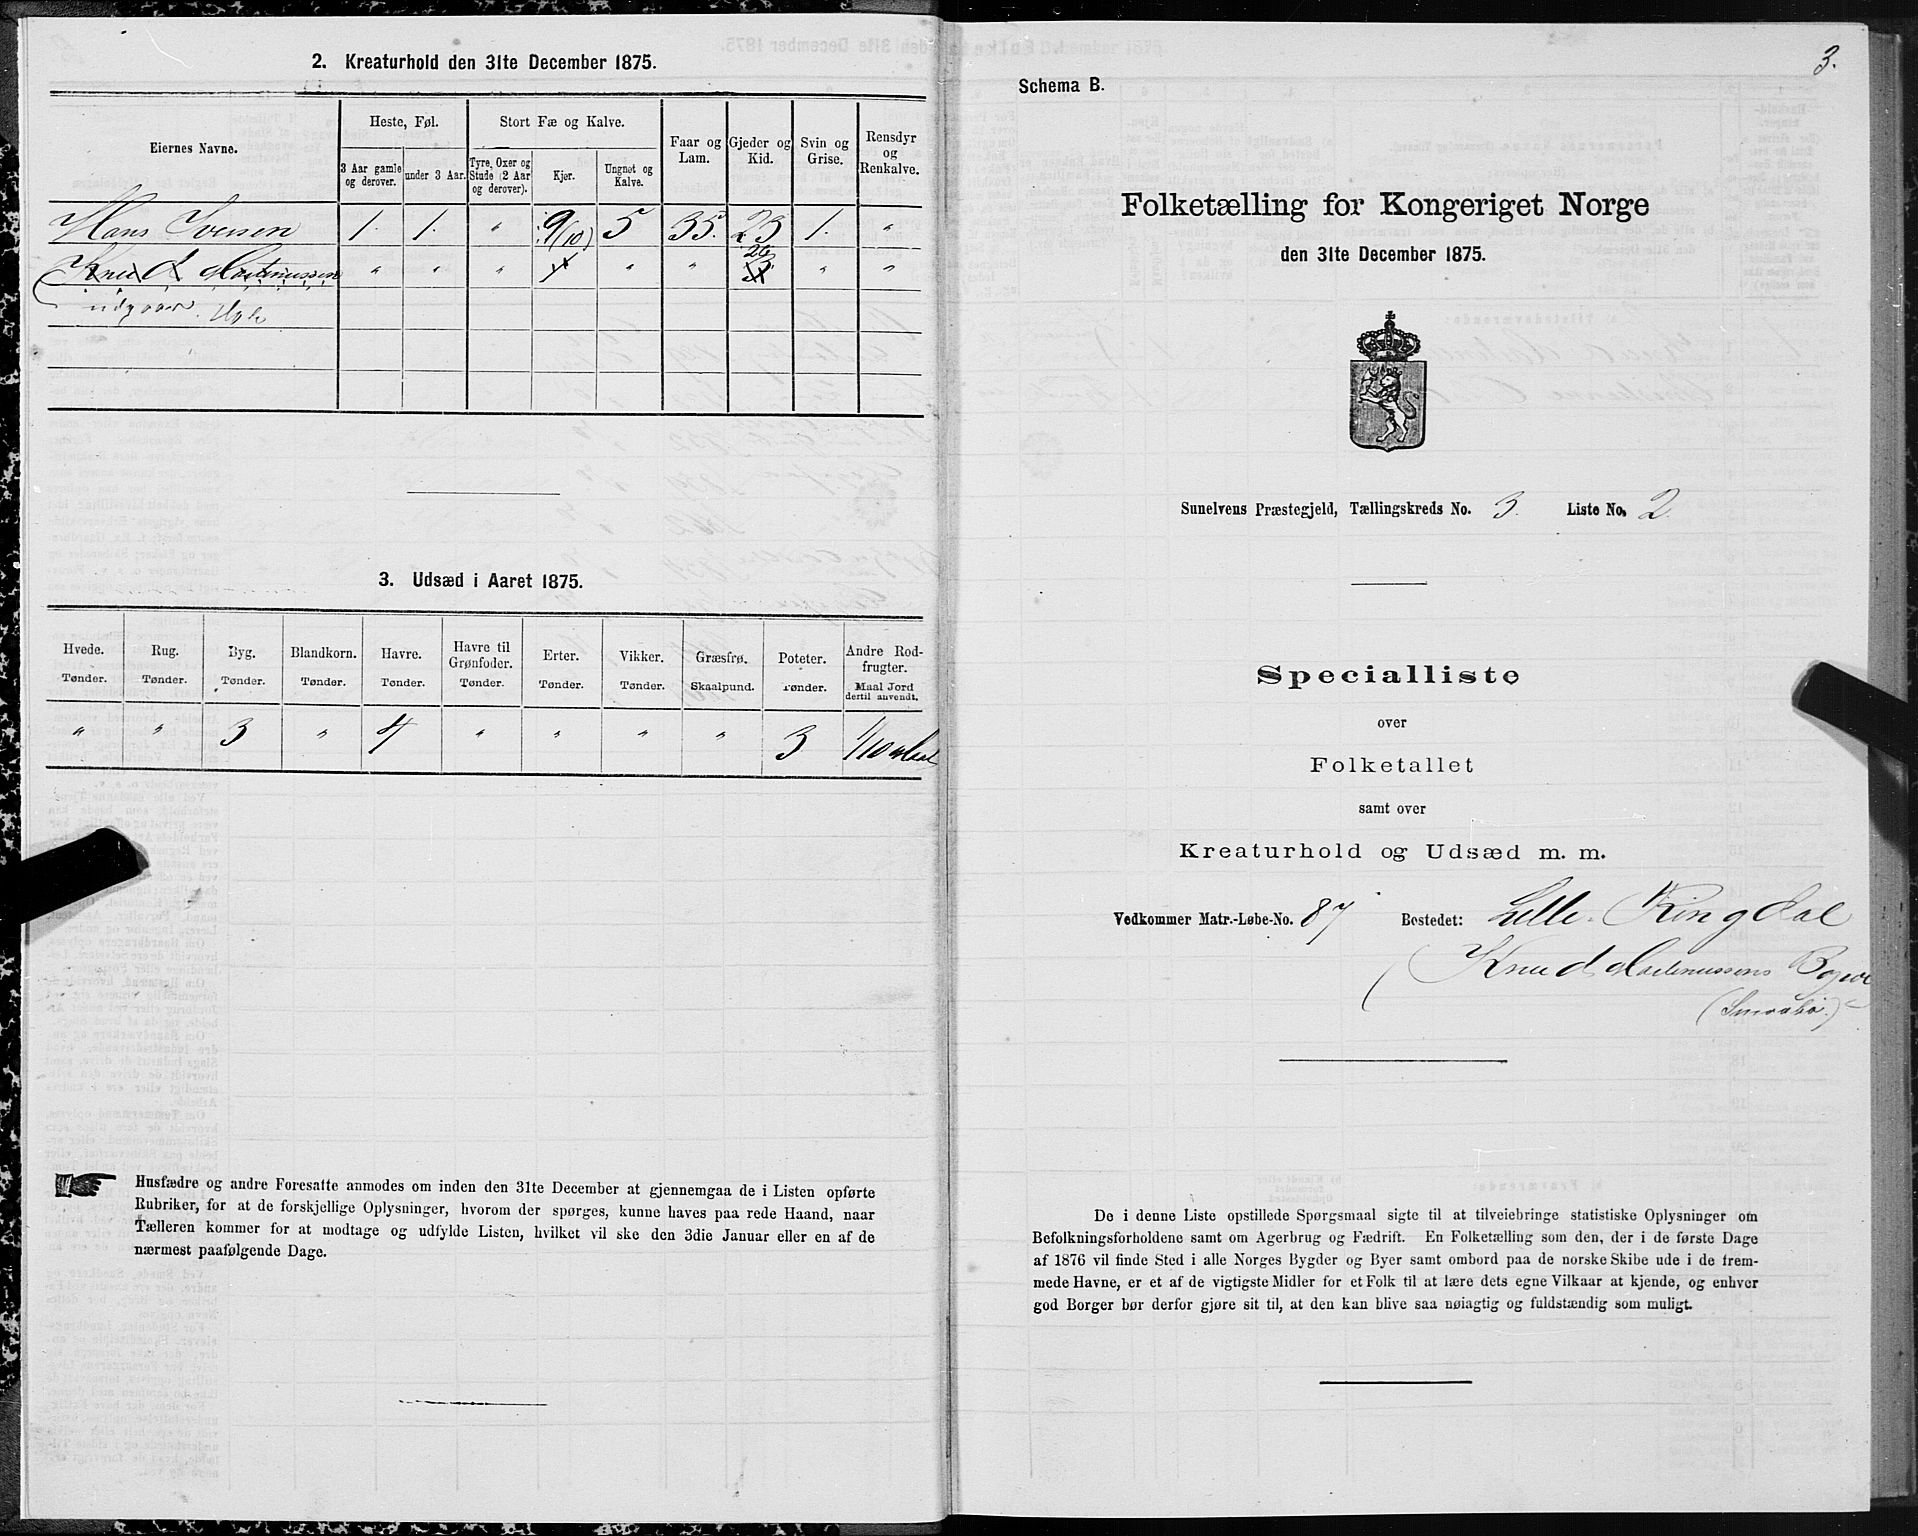 2. Kreaturhold den 31te December 1875.
Eiernes Navne.
Heste, Føl.
Stort Fæ og Kalve.
Faar og Lam.
Gjeder og Kid.
Svin og Grise.
Rensdyr og Renkalve.
3 Aar gamle og derover.
under 3 Aar.
Tyre, Oxer og Stude (2 Aar og derover).
Kjør.
Ungnøt og Kalve.
Hans Iversen 1. 1. " 9 (10) 5 35. 23 1. "
Knud Martinussen " " " " " " "
udgaar.
3. Udsæd i Aaret 1875.
Hvede. Rug. Byg. Blandkorn. Havre. Havre til Grønfoder. Erter. Vikker. Græsfrø. Poteter. Andre Rodfrugter.
Tønder. Tønder. Tønder. Tønder. Tønder. Tønder. Tønder. Tønder. Skaalpund. Tønder. Maal Jord dertil anvendt.
" " 3 " 4 " " " " 3 1/10 Maal
Husfædre og andre Foresatte anmodes om inden den 31te December at gjennemgaa de i Listen opførte
Rubriker, for at de forskjellige Oplysninger, hvorom der spørges, kunne haves paa rede Haand, naar
Tælleren kommer for at modtage og udfylde Listen, hvilket vil ske den 3die Januar eller en af de
nærmest paafølgende Dage.
3.
Schema B.
Folketælling for Kongeriget Norge
den 31te December 1875.
Sunelvens Præstegjeld, Tællingskreds No. 3. Liste No. 2.
Specialliste
over
Folketallet
samt over
Kreaturhold og Udsæd m. m.
Vedkommer Matr.-Løbe-No. 87 Bostedet: Lille-Ringdal
(Knud Martinussens
De i denne Liste opstillede Spørgsmaal sigte til at tilveiebringe statistiske Oplysninger om
Befolkningsforholdene samt om Agerbrug og Fædrift. En Folketælling som den, der i de første Dage
af 1876 vil finde Sted i alle Norges Bygder og Byer samt ombord paa de norske Skibe ude i de frem-
mede Havne, er et af de vigtigste Midler for et Folk til at lære dets egne Vilkaar at kjende, og enhver
god Borger bør derfor gjøre sit til, at den kan blive saa nøiagtig og fuldstændig som muligt.